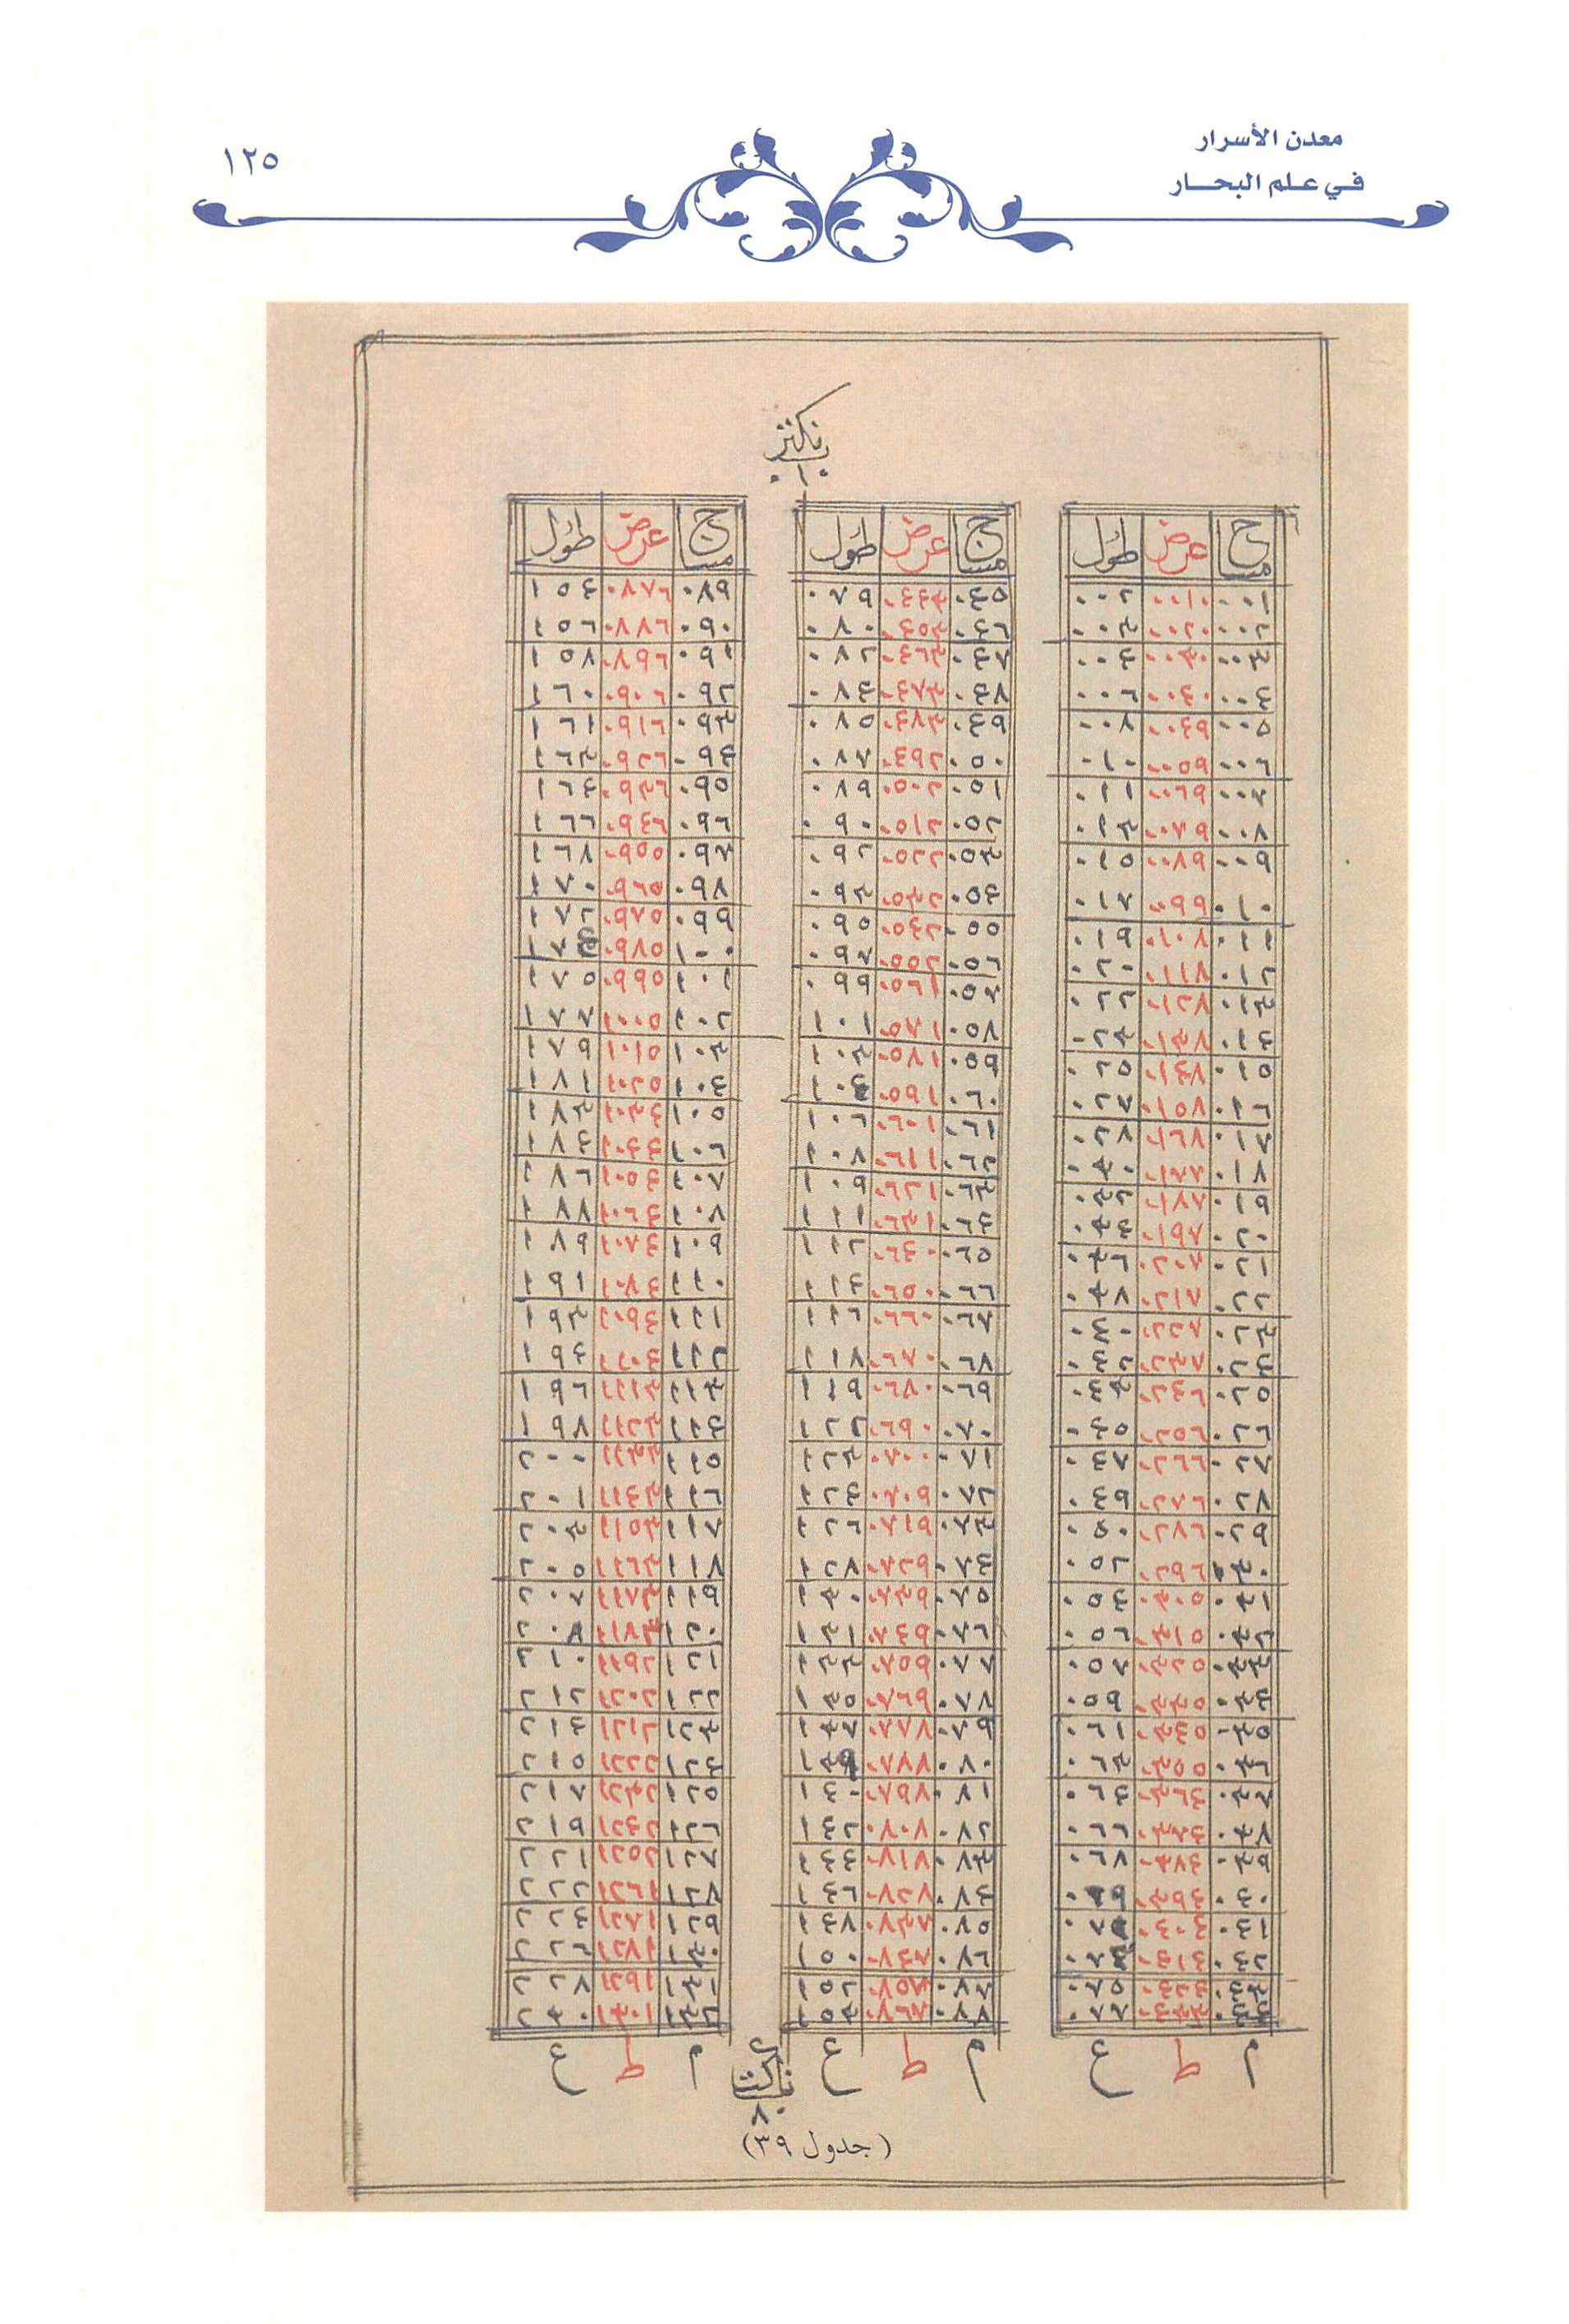 معدن الأسرار
في علم البحار
١٢٥
نكتز
١٠
مساج عرض طول
٠٠١ ٠٠١٠ ٠٠٢
٠٠٢ ٠٠٢٠ ٠٠٣
٠٠٣ ٠٠٣٠ ٠٠٤
٠٠٤ ٠٠٤٠ ٠٠٦
٠٠٥ ٠٠٤٩ ٠٠٨
٠٠٦ ٠٠٥٩ ٠١٠
٠٠٧ ٠٠٦٩ ٠١١
٠٠٨ ٠٠٧٩ ٠١٣
٠٠٩ ٠٠٨٩ ٠١٥
٠١٠ ٠٠٩٩ ٠١٧
٠١١ ٠١٠٨ ٠١٩
٠١٢ ٠١١٨ ٠٢٠
٠١٣ ٠١٢٨ ٠٢٢
٠١٤ ٠١٣٨ ٠٢٣
٠١٥ ٠١٤٨ ٠٢٥
٠١٦ ٠١٥٨ ٠٢٧
٠١٧ ٠١٦٧ ٠٢٨
٠١٨ ٠١٧٧ ٠٣٠
٠١٩ ٠١٨٧ ٠٣٢
٠٢٠ ٠١٩٧ ٠٣٤
٠٢١ ٠٢٠٧ ٠٣٦
٠٢٢ ٠٢١٧ ٠٣٨
٠٢٣ ٠٢٢٧ ٠٤٠
٠٢٤ ٠٢٣٧ ٠٤٢
٠٢٥ ٠٢٤٦ ٠٤٣
٠٢٦ ٠٢٥٦ ٠٤٥
٠٢٧ ٠٢٦٦ ٠٤٧
٠٢٨ ٠٢٧٦ ٠٤٩
٠٢٩ ٠٢٨٦ ٠٥٠
٠٣٠ ٠٢٩٦ ٠٥٢
٠٣١ ٠٣٠٥ ٠٥٤
٠٣٢ ٠٣١٥ ٠٥٦
٠٣٣ ٠٣٢٥ ٠٥٧
٠٣٤ ٠٣٣٥ ٠٥٩
٠٣٥ ٠٣٤٥ ٠٦١
٠٣٦ ٠٣٥٥ ٠٦٣
٠٣٧ ٠٣٦٤ ٠٦٤
٠٣٨ ٠٣٧٤ ٠٦٦
٠٣٩ ٠٣٨٤ ٠٦٨
٠٤٠ ٠٣٩٤
٠٤١ ٠٤٠٤
٠٤٢ ٠٤١٤
٠٤٣ ٠٤٢٣ ٠٧٥
٠٤٤ ٠٤٣٣ ٠٧٧
م ط ع
مساج عرض طول
٠٤٥ ٠٤٤٣ ٠٧٩
٠٤٦ ٠٤٥٣ ٠٨٠
٠٤٧ ٠٤٦٣ ٠٨٢
٠٤٨ ٠٤٧٣ ٠٨٤
٠٤٩ ٠٤٨٣ ٠٨٥
٠٥٠ ٠٤٩٢ ٠٨٧
٠٥١ ٠٥٠٢ ٠٨٩
٠٥٢ ٠٥١٢ ٠٩٠
٠٥٣ ٠٥٢٢ ٠٩٢
٠٥٤ ٠٥٣٢ ٠٩٣
٠٥٥ ٠٥٤٢ ٠٩٥
٠٥٦ ٠٥٥٢ ٠٩٧
٠٥٧ ٠٥٦١ ٠٩٩
٠٥٨ ٠٥٧١ ١٠١
٠٥٩ ٠٥٨١ ١٠٣
٠٦٠ ٠٥٩١ ١٠٤
٠٦١ ٠٦٠١ ١٠٦
٠٦٢ ٠٦١١ ١٠٨
٠٦٣ ٠٦٢١ ١٠٩
٠٦٤ ٠٦٣١ ١١١
٠٦٥ ٠٦٤٠ ١١٢
٠٦٦ ٠٦٥٠ ١١٤
٠٦٧ ٠٦٦٠ ١١٦
٠٦٨ ٠٦٧٠ ١١٨
٠٦٩ ٠٦٨٠ ١١٩
٠٧٠ ٠٦٩٠ ١٢٢
٠٧١ ٠٧٠٠ ١٢٣
٠٧٢ ٠٧٠٩ ١٢٤
٠٧٣ ٠٧١٩ ١٢٦
٠٧٤ ٠٧٢٩ ١٢٨
٠٧٥ ٠٧٣٩ ١٣٠
٠٧٦ ٠٧٤٩ ١٣١
٠٧٧ ٠٧٥٩ ١٣٣
٠٧٨ ٠٧٦٩ ١٣٥
٠٧٩ ٠٧٧٨ ١٣٧
٠٨٠ ٠٧٨٨ ١٣٩
٠٨١ ٠٧٩٨ ١٤٠
٠٨٢ ٠٨٠٧ ١٤٢
٠٨٣ ٠٨١٧ ١٤٤
٠٨٤ ٠٨٢٧ ١٤٦
٠٨٥ ٠٨٣٧ ١٤٨
٠٨٦ ٠٨٤٧ ١٥٠
٠٨٧ ٠٨٥٧ ١٥٢
٠٨٨ ٠٨٦٧ ١٥٣
م ط ع
مساج عرض طول
٠٨٩ ٠٨٧٦ ١٥٤
٠٩٠ ٠٨٨٦ ١٥٦
٠٩١ ٠٨٩٦ ١٥٨
٠٩٢ ٠٩٠٦ ١٦٠
٠٩٣ ٠٩١٦ ١٦١
٠٩٤ ٠٩٢٦ ١٦٣
٠٩٥ ٠٩٣٦ ١٦٤
٠٩٦ ٠٩٤٦ ١٦٦
٠٩٧ ٠٩٥٥ ١٦٨
٠٩٨ ٠٩٦٥ ١٧٠
٠٩٩ ٠٩٧٥ ١٧٢
١٠٠ ٠٩٨٥ ١٧٤
١٠١ ٠٩٩٥ ١٧٥
١٠٢ ١٠٠٥ ١٧٧
١٠٣ ١٠١٥ ١٧٩
١٠٤ ١٠٢٥ ١٨١
١٠٥ ١٠٣٤ ١٨٣
١٠٦ ١٠٤٤ ١٨٤
١٠٧ ١٠٥٤ ١٨٦
١٠٨ ١٠٦٤ ١٨٨
١٠٩ ١٠٧٤ ١٨٩
١١٠ ١٠٨٤ ١٩١
١١١ ١٠٩٤ ١٩٣
١١٢ ١١٠٤ ١٩٤
١١٣ ١١١٣ ١٩٦
١١٤ ١١٢٣ ١٩٨
١١٥ ١١٣٣ ٢٠٠
١١٦ ١١٤٣ ٢٠١
١١٧ ١١٥٣ ٢٠٣
١١٨ ١١٦٣ ٢٠٥
١١٩ ١١٧٣ ٢٠٧
١٢٠ ١١٨٣ ٢٠٨
١٢١ ١١٩٢ ٢١٠
١٢٢ ١٢٠٢ ٢١٢
١٢٣ ١٢١٢ ٢١٤
١٢٤ ١٢٢٢ ٢١٥
١٢٥ ١٢٣٢ ٢١٧
١٢٦ ١٢٤٢ ٢١٩
١٢٧ ١٢٥٢ ٢٢١
١٢٨ ١٢٦١ ٢٢٢
١٢٩ ١٢٧١ ٢٢٤
١٣٠ ١٢٨١ ٢٢٦
١٣١ ١٢٩١ ٢٢٨
١٣٢ ١٣٠١ ٢٣٠
م ط ع
٨٠
(جدول ٣٩)